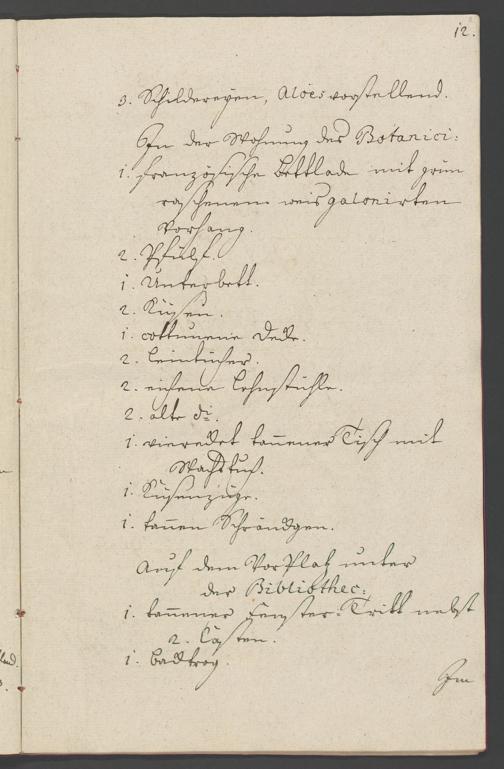 12.
3. Schildereyen, Aloës vorstellend.
In der Wohnung des Botanici:
1. französische Bettlade mit grün
raschenem weis galonirten
Vorhang.
2. Pfülf.
1. Unterbett.
2. Küssen.
1. cottunene Decke.
2. Leintücher.
2. eichene Lehnstühle.
2. alte d:o
1. viereckt tannener Tisch mit
Wachstuch.
1. Küsenzüge.
1. tannen Schränckgen.
Auf dem VorPlatz unter
der Bibliothec:
1. tannener Fenster-Tritt nebst
2. Kästen.
1. Badtrog.
Im